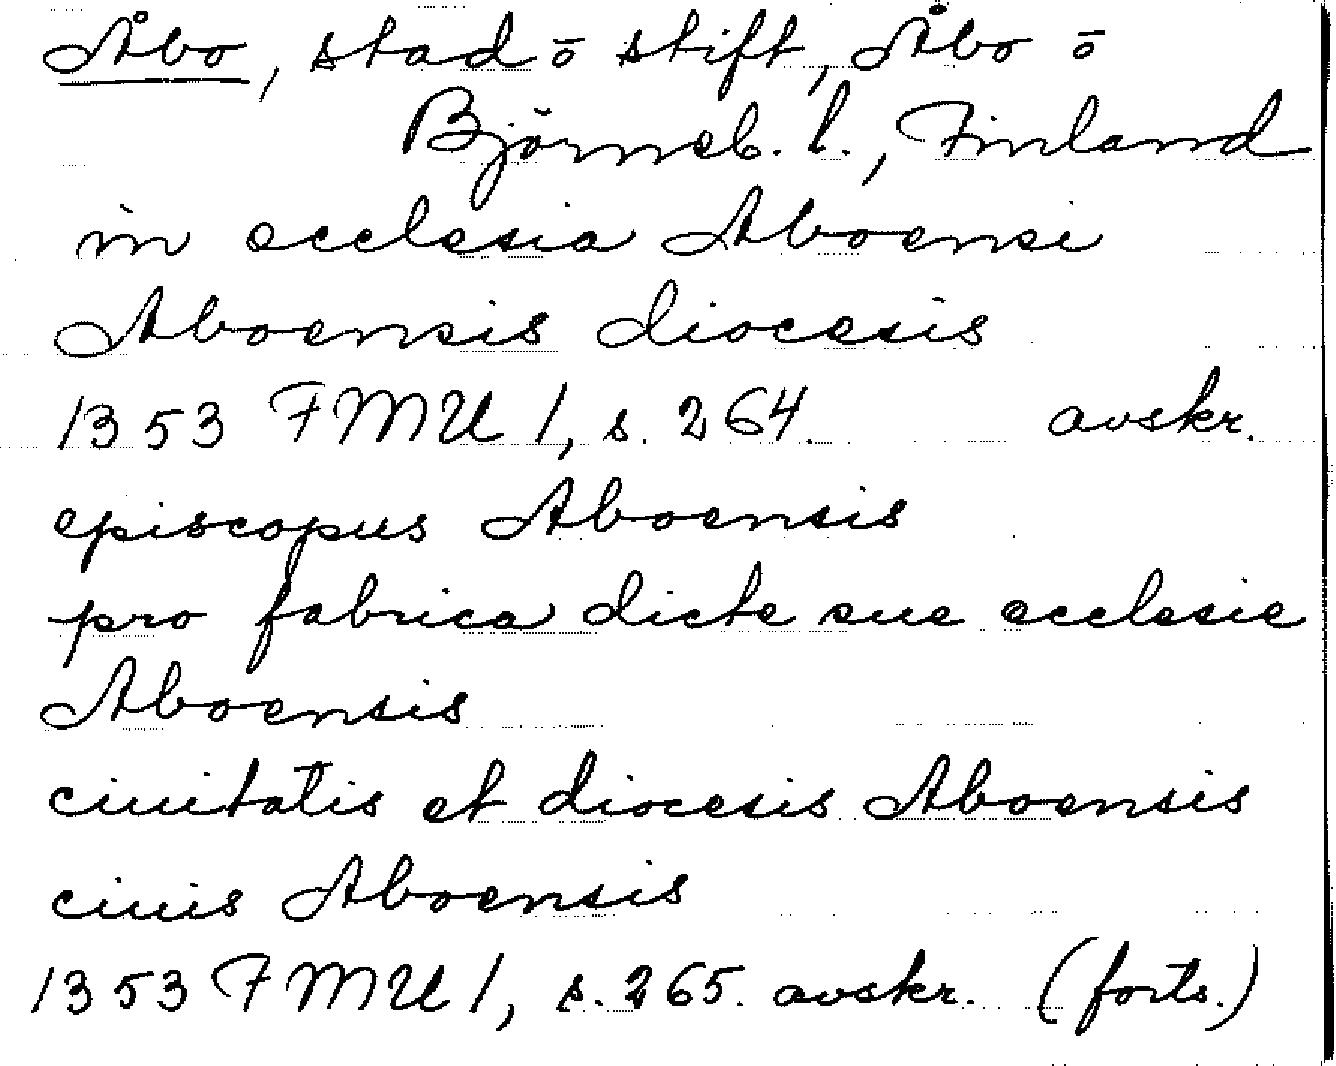 Åbo, stad ō stift, Åbo ō
Björneb. l., Finland
in ecclesia Aboensi
Aboensis diocesis
1353 FMU 1, s. 264. avskr.
episcopus Aboensis
pro fabrica dicte sue ecclesie
Aboensis
ciuitatis et diocesis Aboensis
ciuis Aboensis
1353 FMU 1, s. 265. avskr. (forts.)